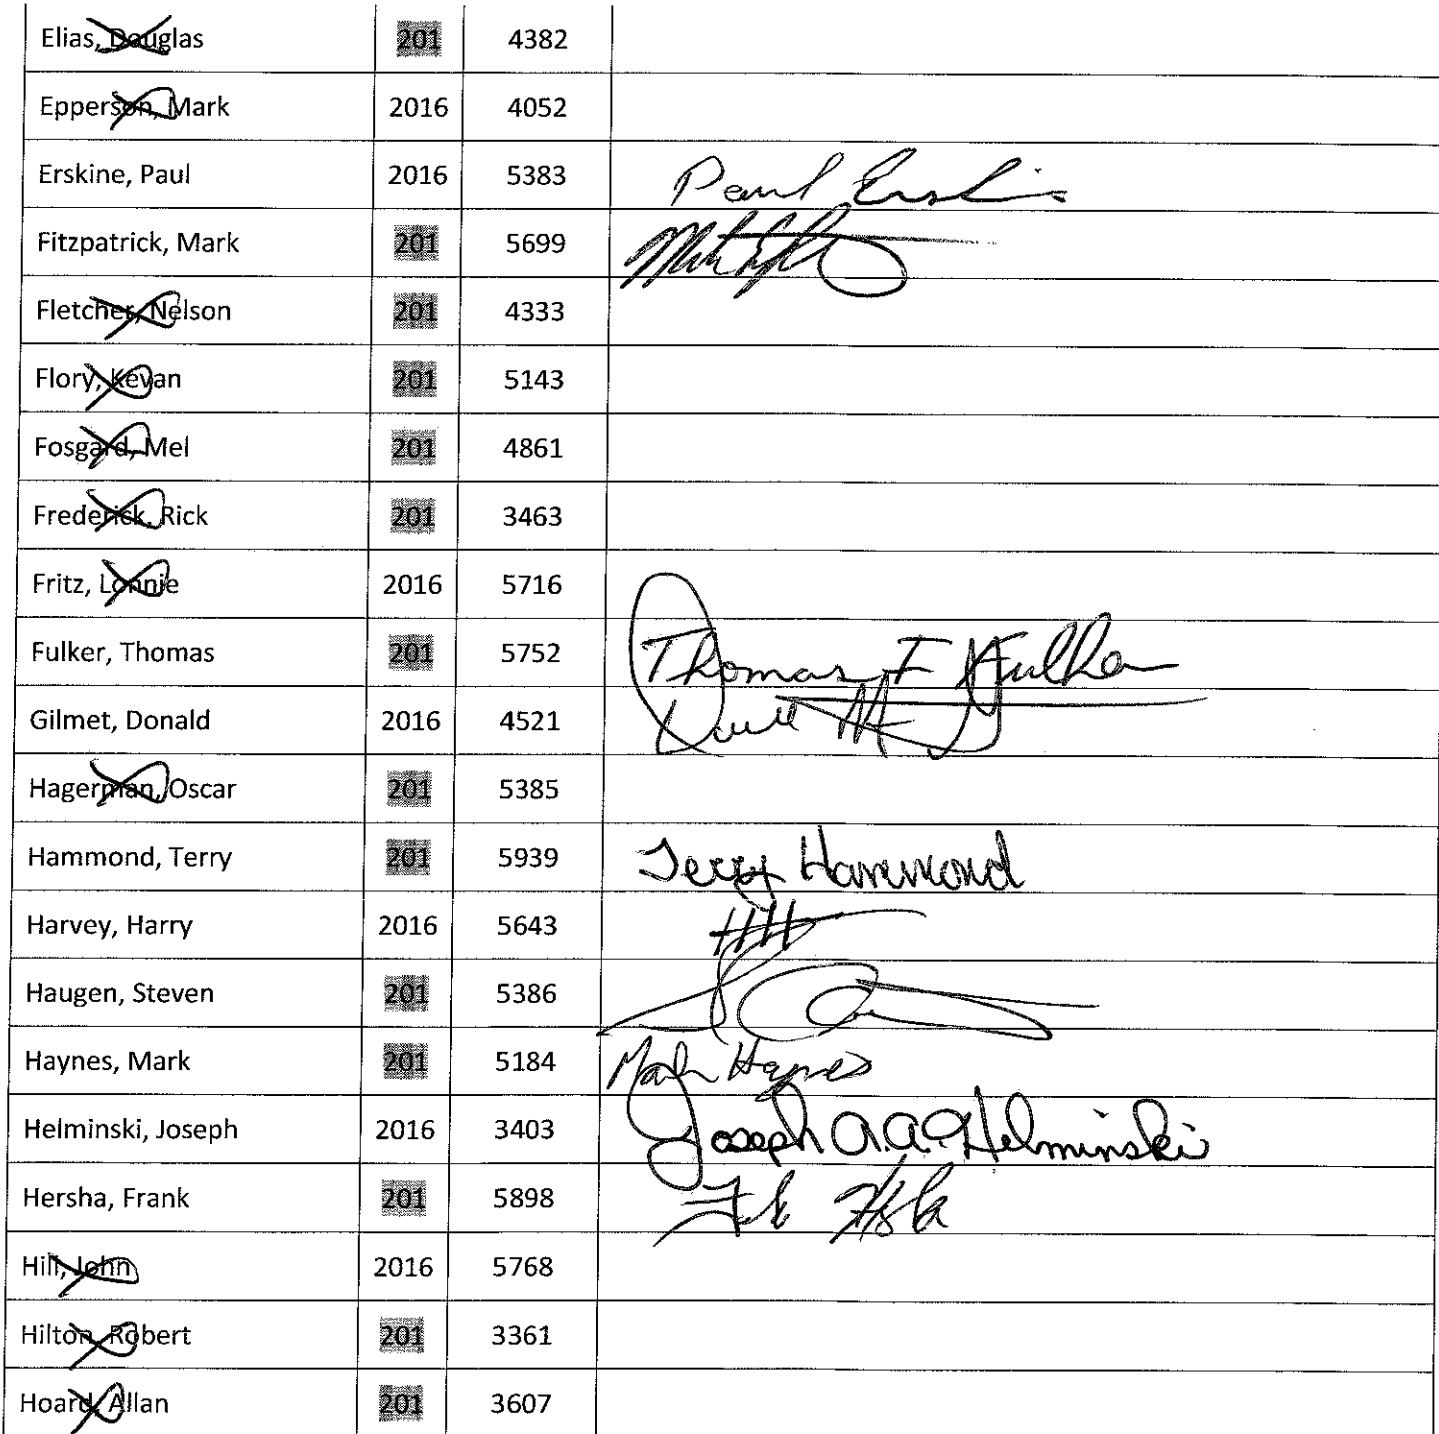 Elias, Douglas 201 4382
Epperson, Mark 2016 4052
Erskine, Paul 2016 5383 Paul Erskine
Fitzpatrick, Mark 201 5699
Fletcher, Nelson 201 4333
Flory, Kevan 201 5143
Fosgard, Mel 201 4861
Frederick, Rick 201 3463
Fritz, Lonnie 2016 5716
Fulker, Thomas 201 5752 Thomas F Fulker
Gilmet, Donald 2016 4521
Hagerman, Oscar 201 5385
Hammond, Terry 201 5939 Terry Hammond
Harvey, Harry 2016 5643 HH
Haugen, Steven 201 5386
Haynes, Mark 201 5184 Mark Haynes
Helminski, Joseph 2016 3403 Joseph A.A. Helminski
Hersha, Frank 201 5898
Hill, John 2016 5768
Hilton, Robert 201 3361
Hoard, Allan 201 3607